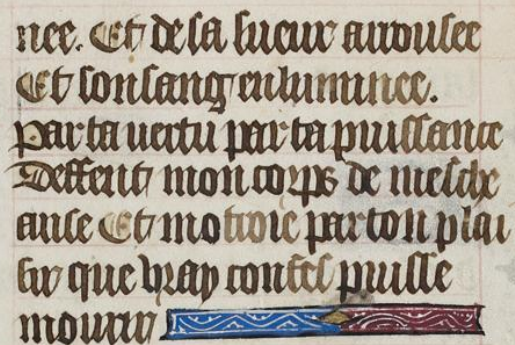 nee. Et de sa sueur arrousee
Et son sang enluminee.
Par ta uertu par ta puissance
Deffent mon corps de mesche
anse Et motroie par ton plai
sir que vray confes puisse
mourir